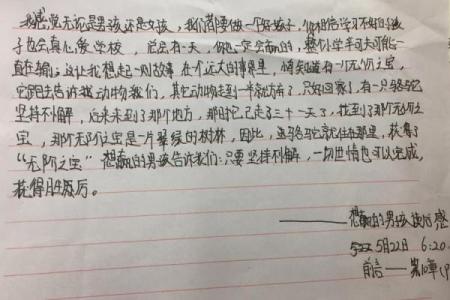 我感觉无论是男孩还是女孩，我们都要做一个好孩子，你相信学习不好的孩
子也会真心爱学校，总会有一天，你一定会赢的，整个学年可大可能一
直在输，这让我想起一则故事 在个庞大的世界里，悄知道有一个无价之宝，
它跑去告诉我动物我们，其它动物走到一半就放弃了，只好回家，有一只骆驼
坚持不懈，后来来到了那个地方，那时它已走了三十一天了，找到了那个无价之
宝，那个无价之宝是一片翠绿的树林，因此，这骆驼就住在那里，获得了
“无价之宝” 想赢的男孩告诉我们：只要坚持不懈，一切世情也可以完成，
获得胜利。
——想赢的男孩读后感
5月22日 6:20
前言——第10章